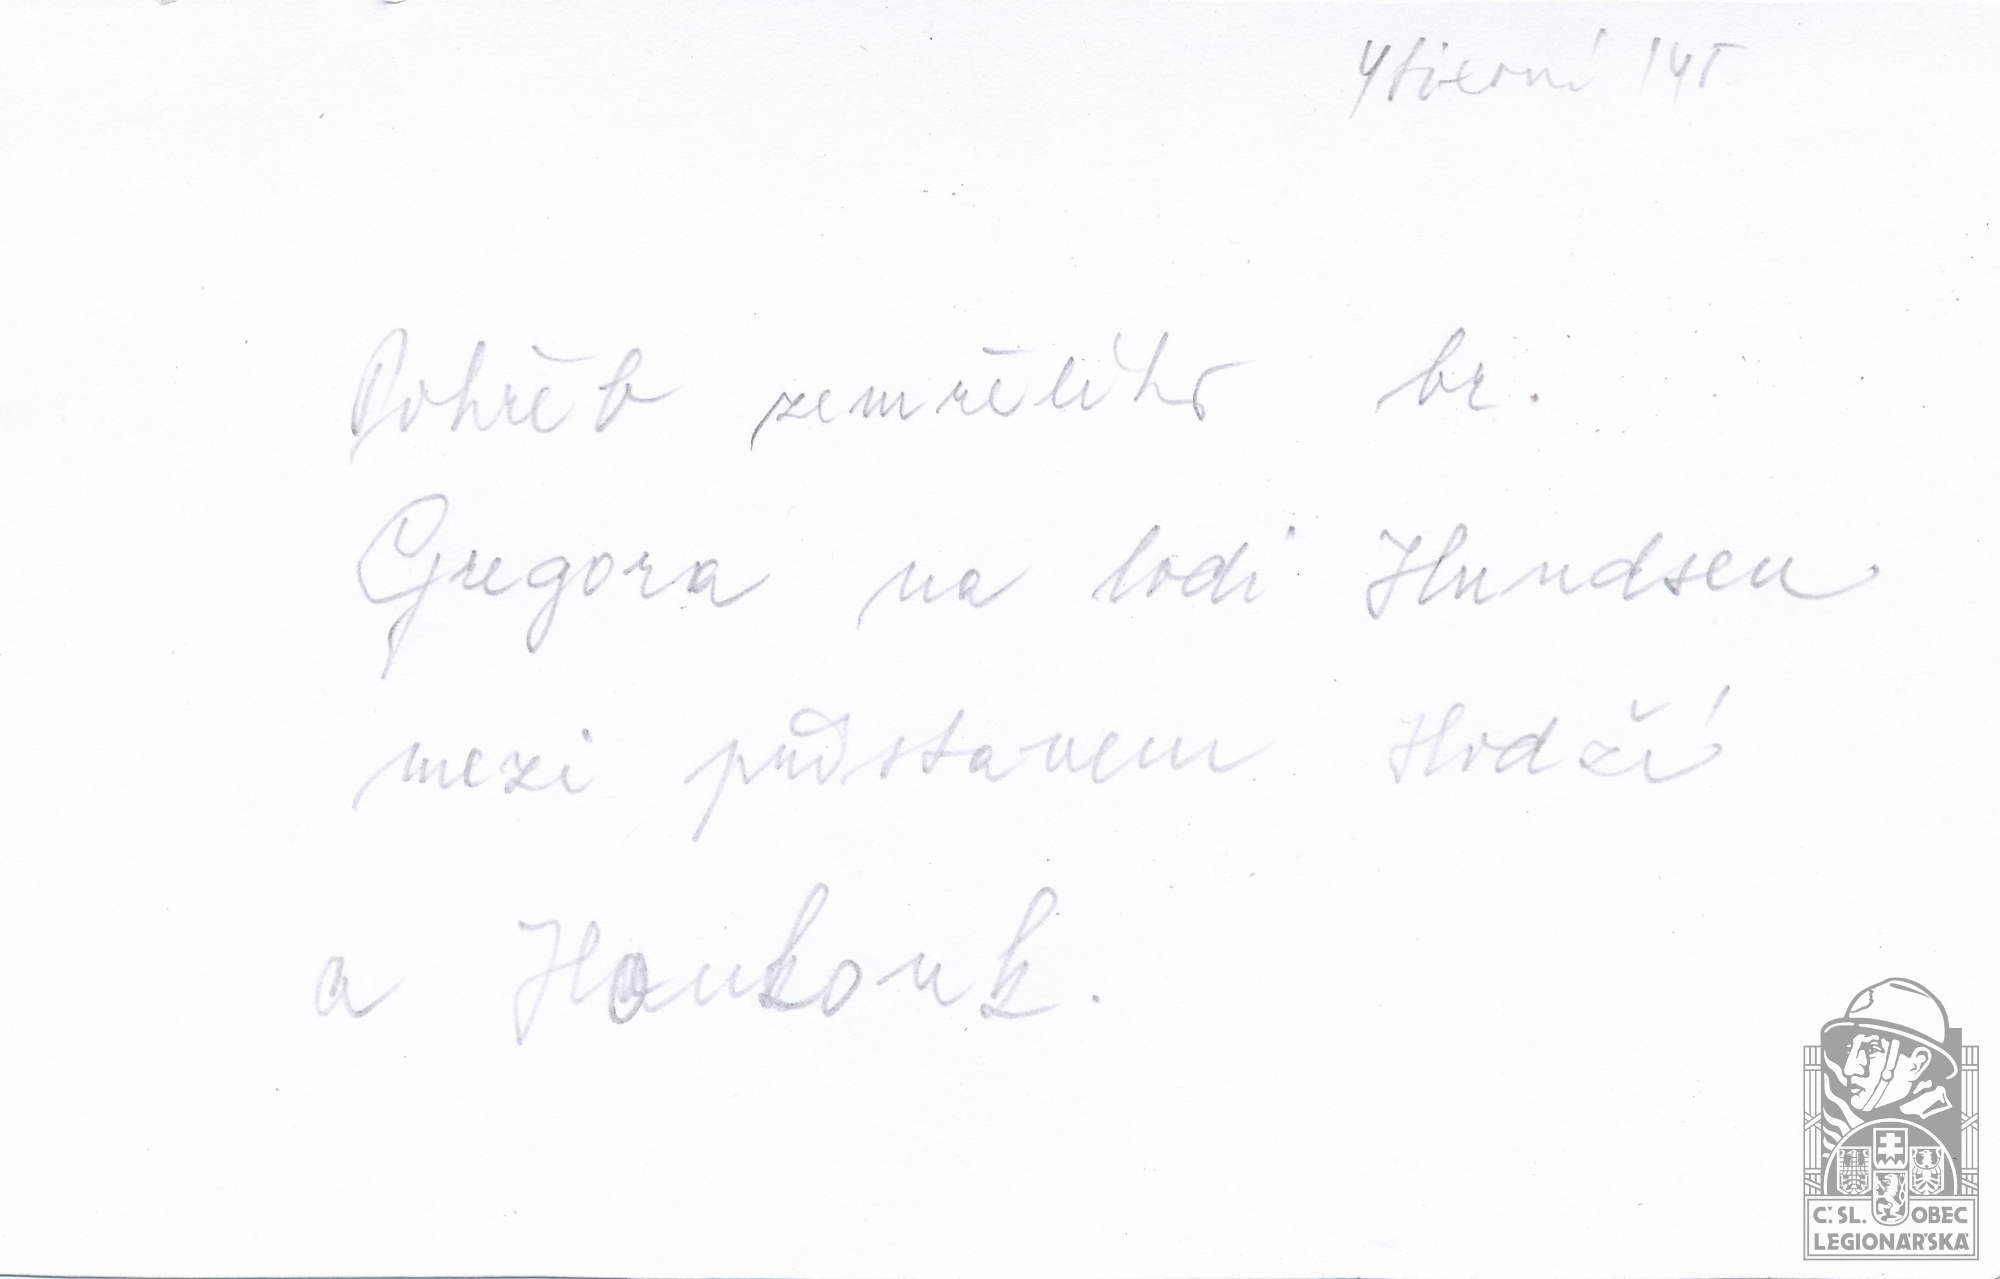 145
Pohřeb zemřelího br.
Gregora na lodi Hundsen
mezi přístavem Hodží
a Honkonk.
Č.SL. OBEC
LEGIONÁŘSKÁ